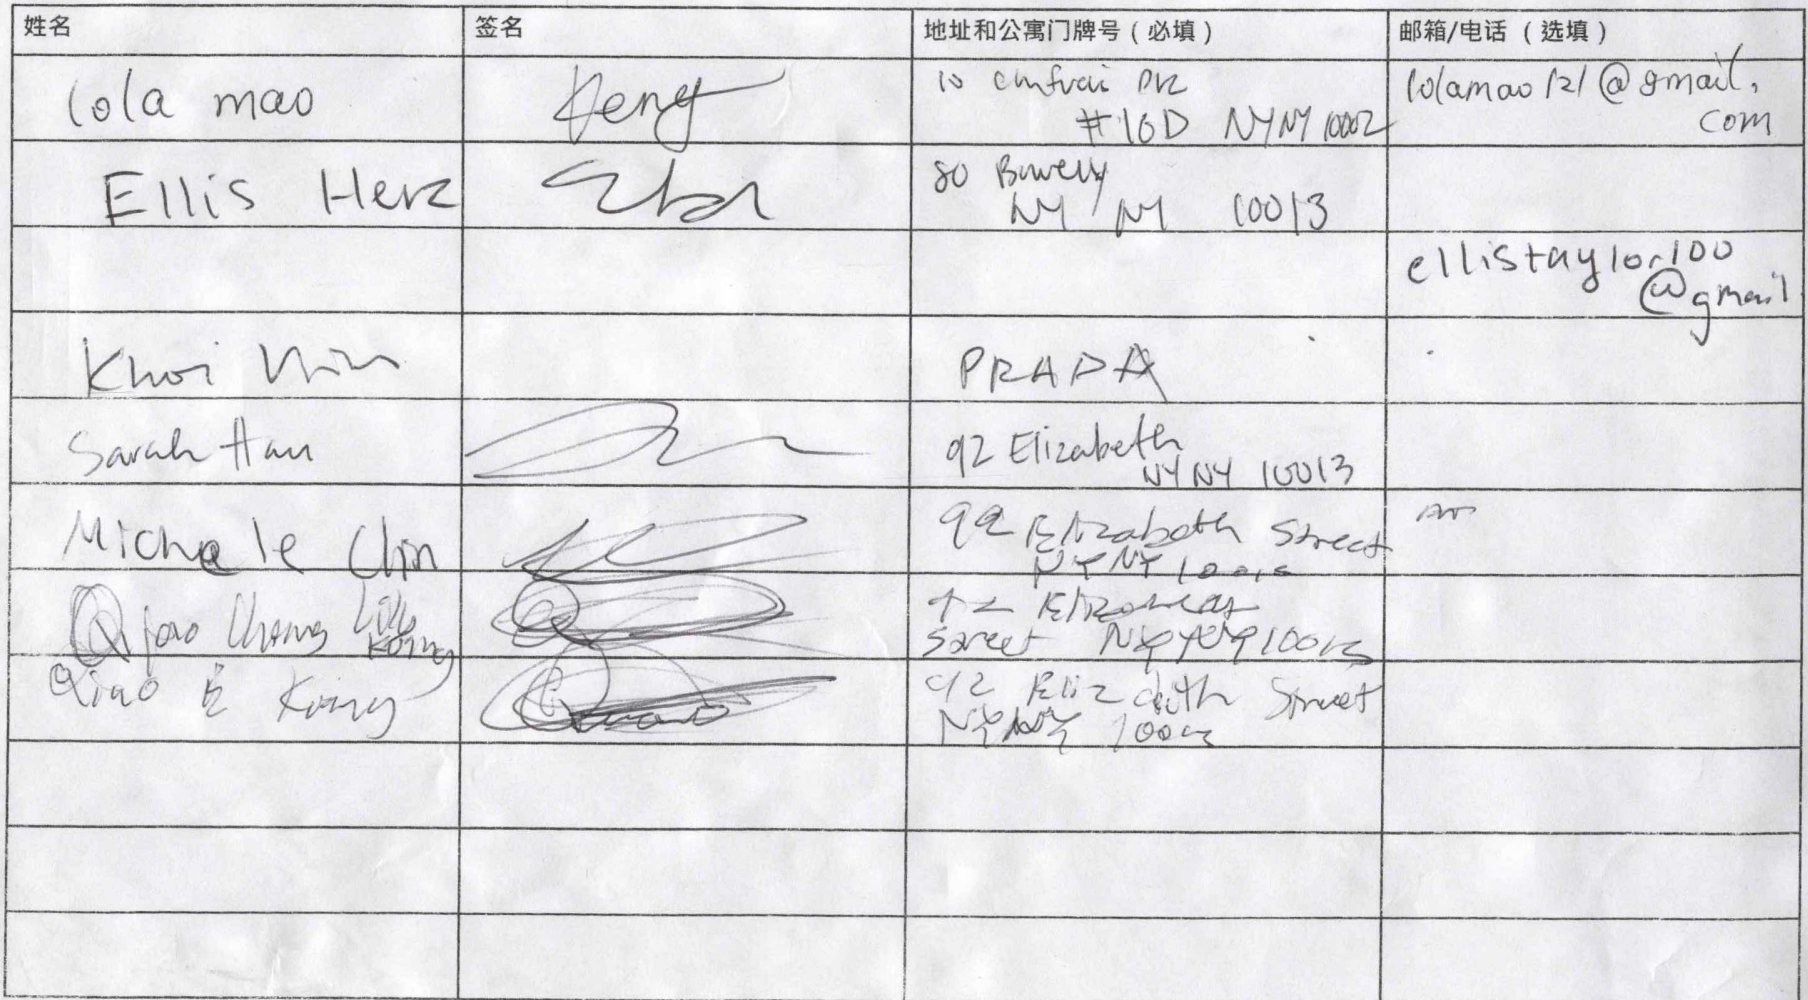 姓名 签名 地址和公寓门牌号（必填） 邮箱/电话（选填）
lola mao
10
#10D NYNY 10002
lolamao121@gmail.
com
Ellis Herz
80 Bowery
NY NY 10013
ellistaylor100
@gmail
Khoi
PRADA
Sarah Han
92 Elizabeth
NYNY 10013
Michele Chin
92 Elizabeth Street
NYNY
Qiao Chang
Kong
92
Street NYNY 10013
Qiao E Kong
92 Elizabeth Street
NYNY